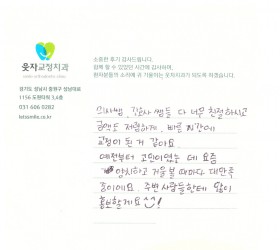 소중한 후기 감사드립니다.
함께 할 수 있었던 시간에 감사하며,
환자분들의 소리에 귀 기울이는 웃자치과가 되도록 하겠습니다.
웃자교정치과
경기도 성남시 중원구 성남대로
1156 도정타워 3,4층
031 606 0282
letsmile.co.kr
의사쌤, 간호사 쌤들 다 너무 친절하시고
금액도 저렴하게, 빠른 시간에
교정이 된 거 같아요.
예전부터 고민이었는데 요즘
양치하고 거울 볼 때마다 대만족
중이에요. 주변 사람들한테 많이
홍보할게요